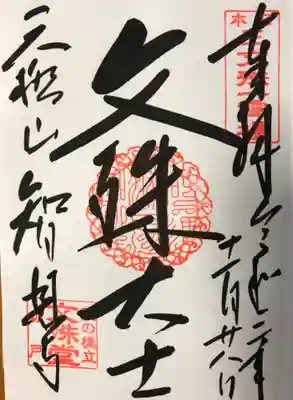 奉拝 令和二年
十一月廿八日
文殊大士
天橋山智恩寺
の橋立
文殊堂